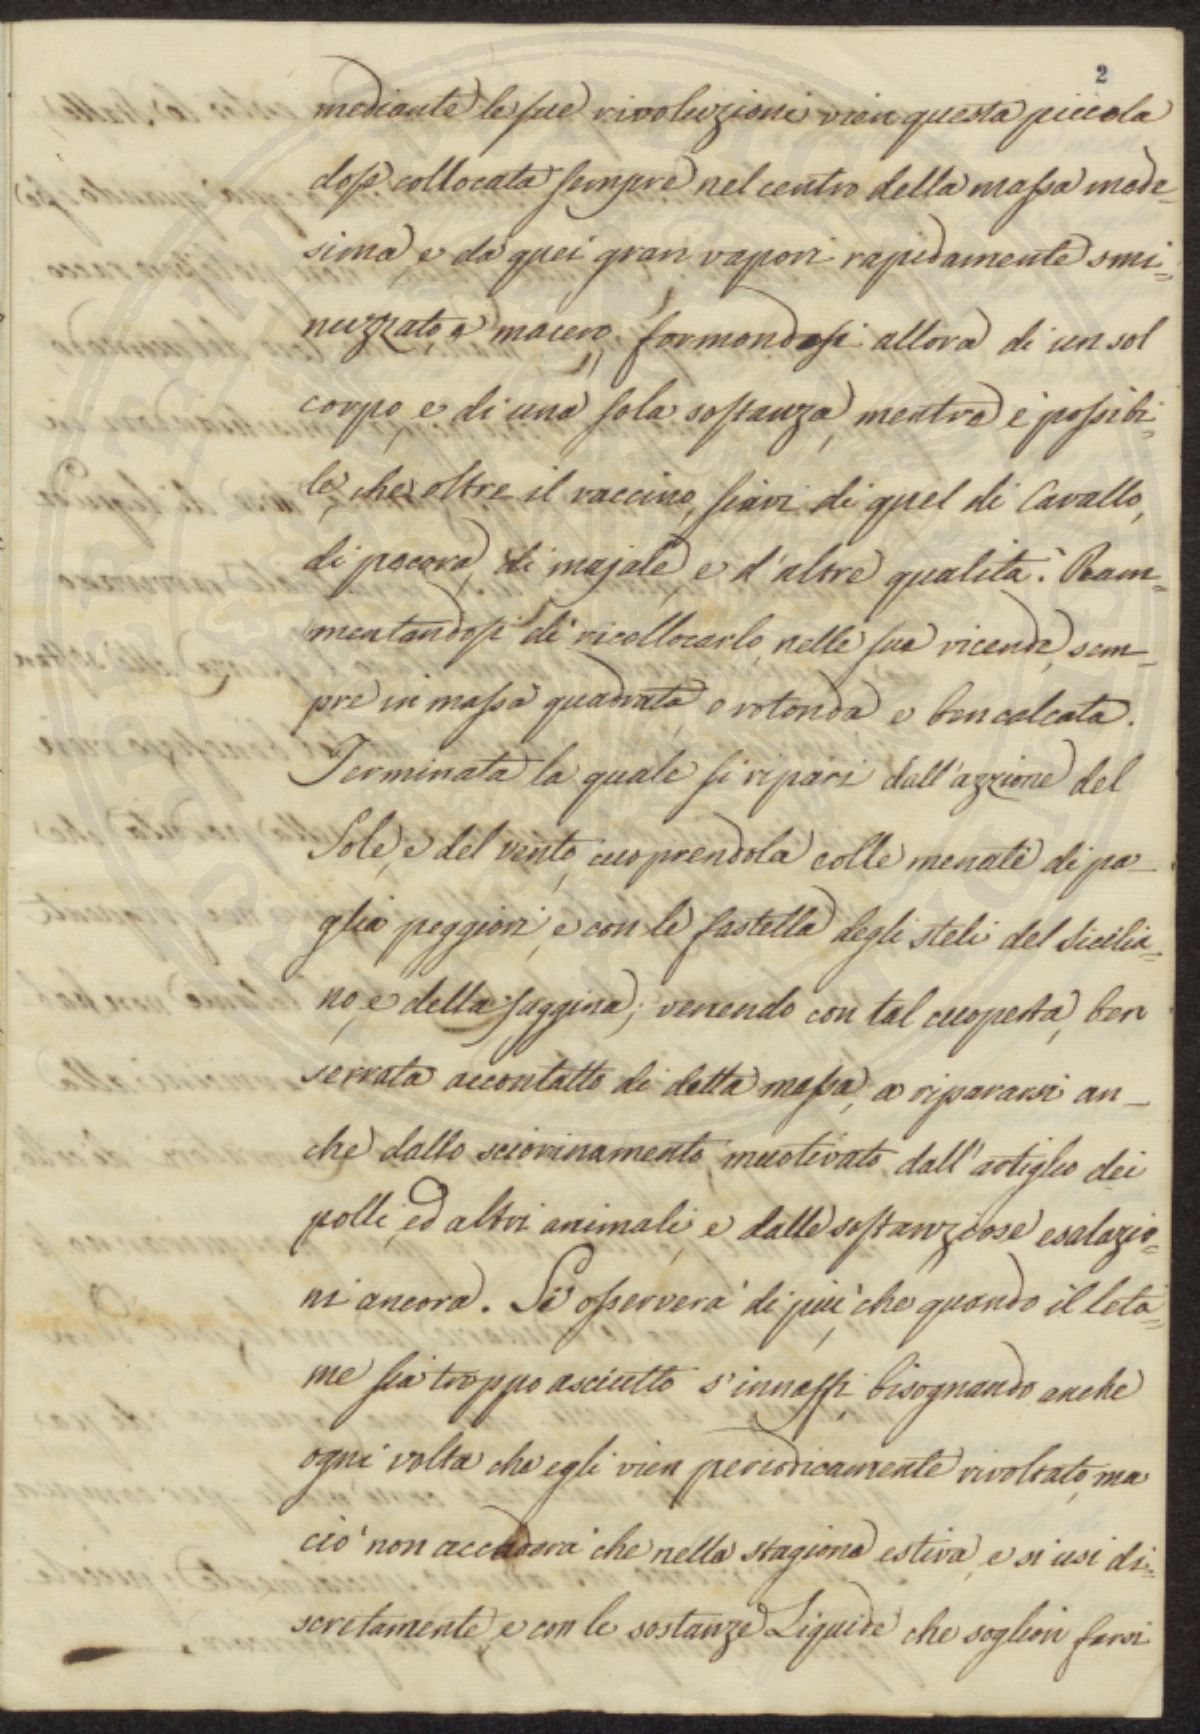 2
mediante le sue rivoluzioni vien questa piccola
dose collocata sempre nel centro della massa mede=
sima, e da quei gran vapori rapidamente smi=
nuzzato, e macero; formandosi allora di un sol
corpo, e di una sola sostanza, mentre è possibi=
le, che oltre il vaccino, siavi di quel di Cavallo,
di pecora, di majale, e d'altre qualità. Ram=
mentandosi di ricollocarlo, nelle sue vicende, sem=
pre in massa quadrata o rotonda e ben calcata.
Terminata la quale si ripari dall'azzione del
Sole, e del vento, cuoprendola colle menate di pa=
glia peggiori, e con le fastella degli steli del Sicilia=
no, e della saggina; venendo con tal cuoperta, ben
serrata accontatto di detta massa, a ripararsi an=
che dallo sciorinamento, muotivato dall'artiglio dei
polli, ed altri animali, e dalle sostanziose esalazio=
ni ancora. Si osserverà di più, che quando il leta=
me sia troppo asciutto s'innaffi, bisognando anche
ogni volta che egli vien periodicamente rivoltato, ma
ciò non accaderà che nella stagione estiva, e si usi di=
scretamente, e con le sostanze Liquide che soglion farsi